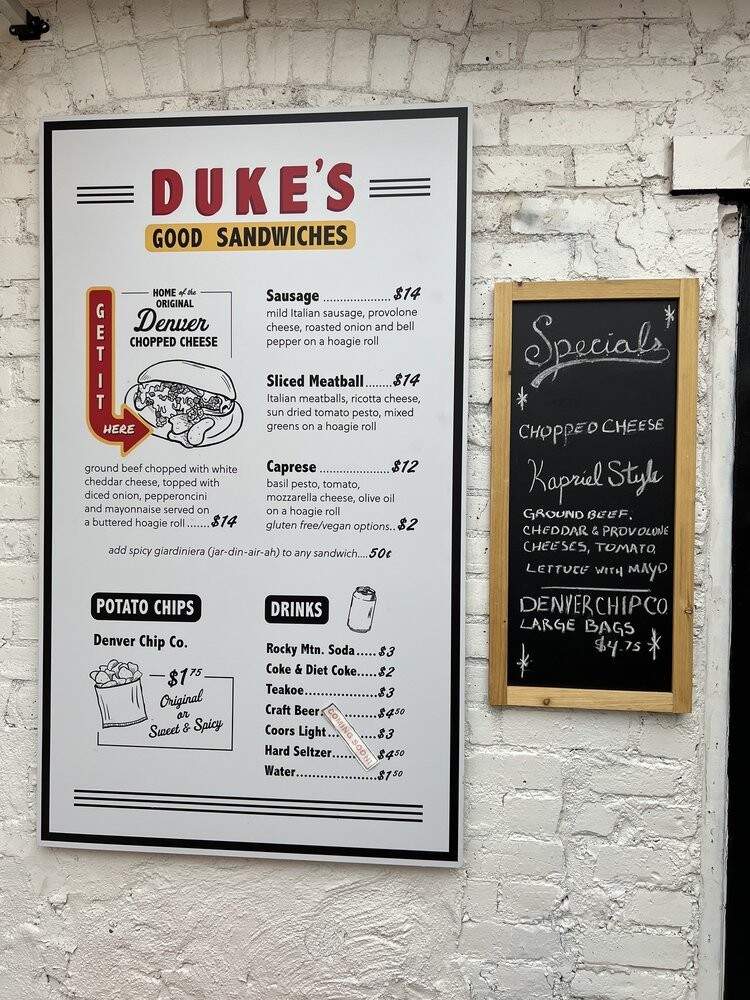 DUKE'S
GOOD SANDWICHES
GET IT
HERE
HOME of the
ORIGINAL
Denver
CHOPPED CHEESE
ground beef chopped with white
cheddar cheese, topped with
diced onion, pepperoncini
and mayonnaise served on
a buttered hoagie roll.......$14
Sausage ....................$14
mild Italian sausage, provolone
cheese, roasted onion and bell
pepper on a hoagie roll
Sliced Meatball.......$14
Italian meatballs, ricotta cheese,
sun dried tomato pesto, mixed
greens on a hoagie roll
Caprese .....................$12
basil pesto, tomato,
mozzarella cheese, olive oil
on a hoagie roll
gluten free/vegan options..$2
add spicy giardiniera (jar-din-air-ah) to any sandwich....50¢
POTATO CHIPS
Denver Chip Co.
$1 75
Original
or
Sweet & Spicy
DRINKS
Rocky Mtn. Soda.....$3
Coke & Diet Coke.....$2
Teakoe....................$3
Craft Beer...............$4 50
Coors Light.............$3
Hard Seltzer...........$4 50
COMING SOON!
Water......................$1 50
Specials
CHOPPED CHEESE
Kapriel Style
GROUND BEEF,
CHEDDAR & PROVOLONE
CHEESES, TOMATO,
LETTUCE WITH MAYO
DENVER CHIP CO
LARGE BAGS
$4.75